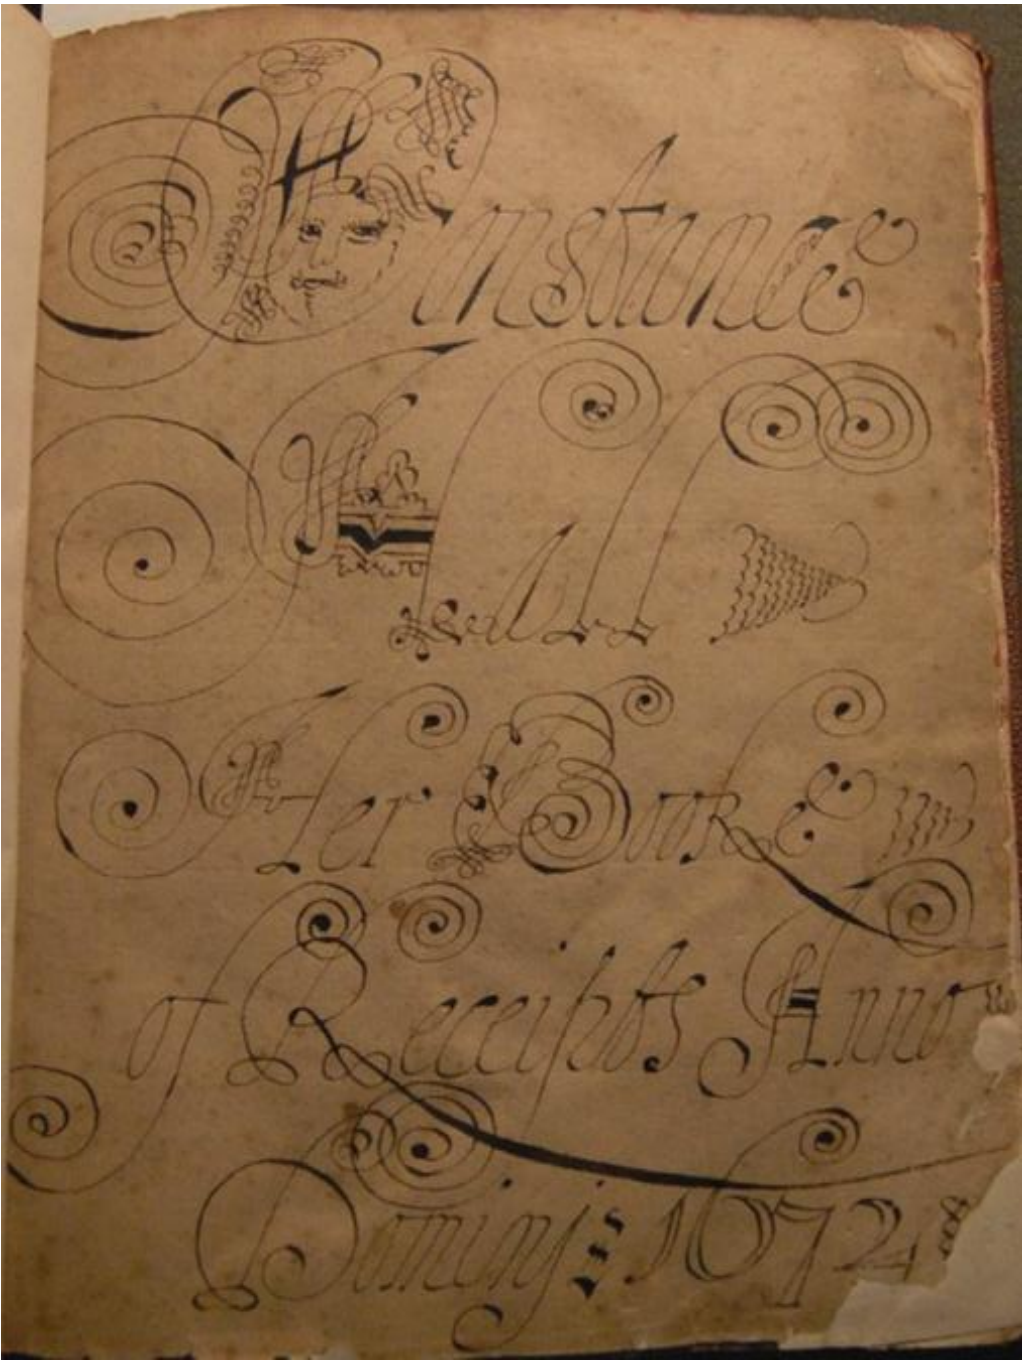 Constance
Hall
Her Booke
of Receipts Anno
Dominj 1672